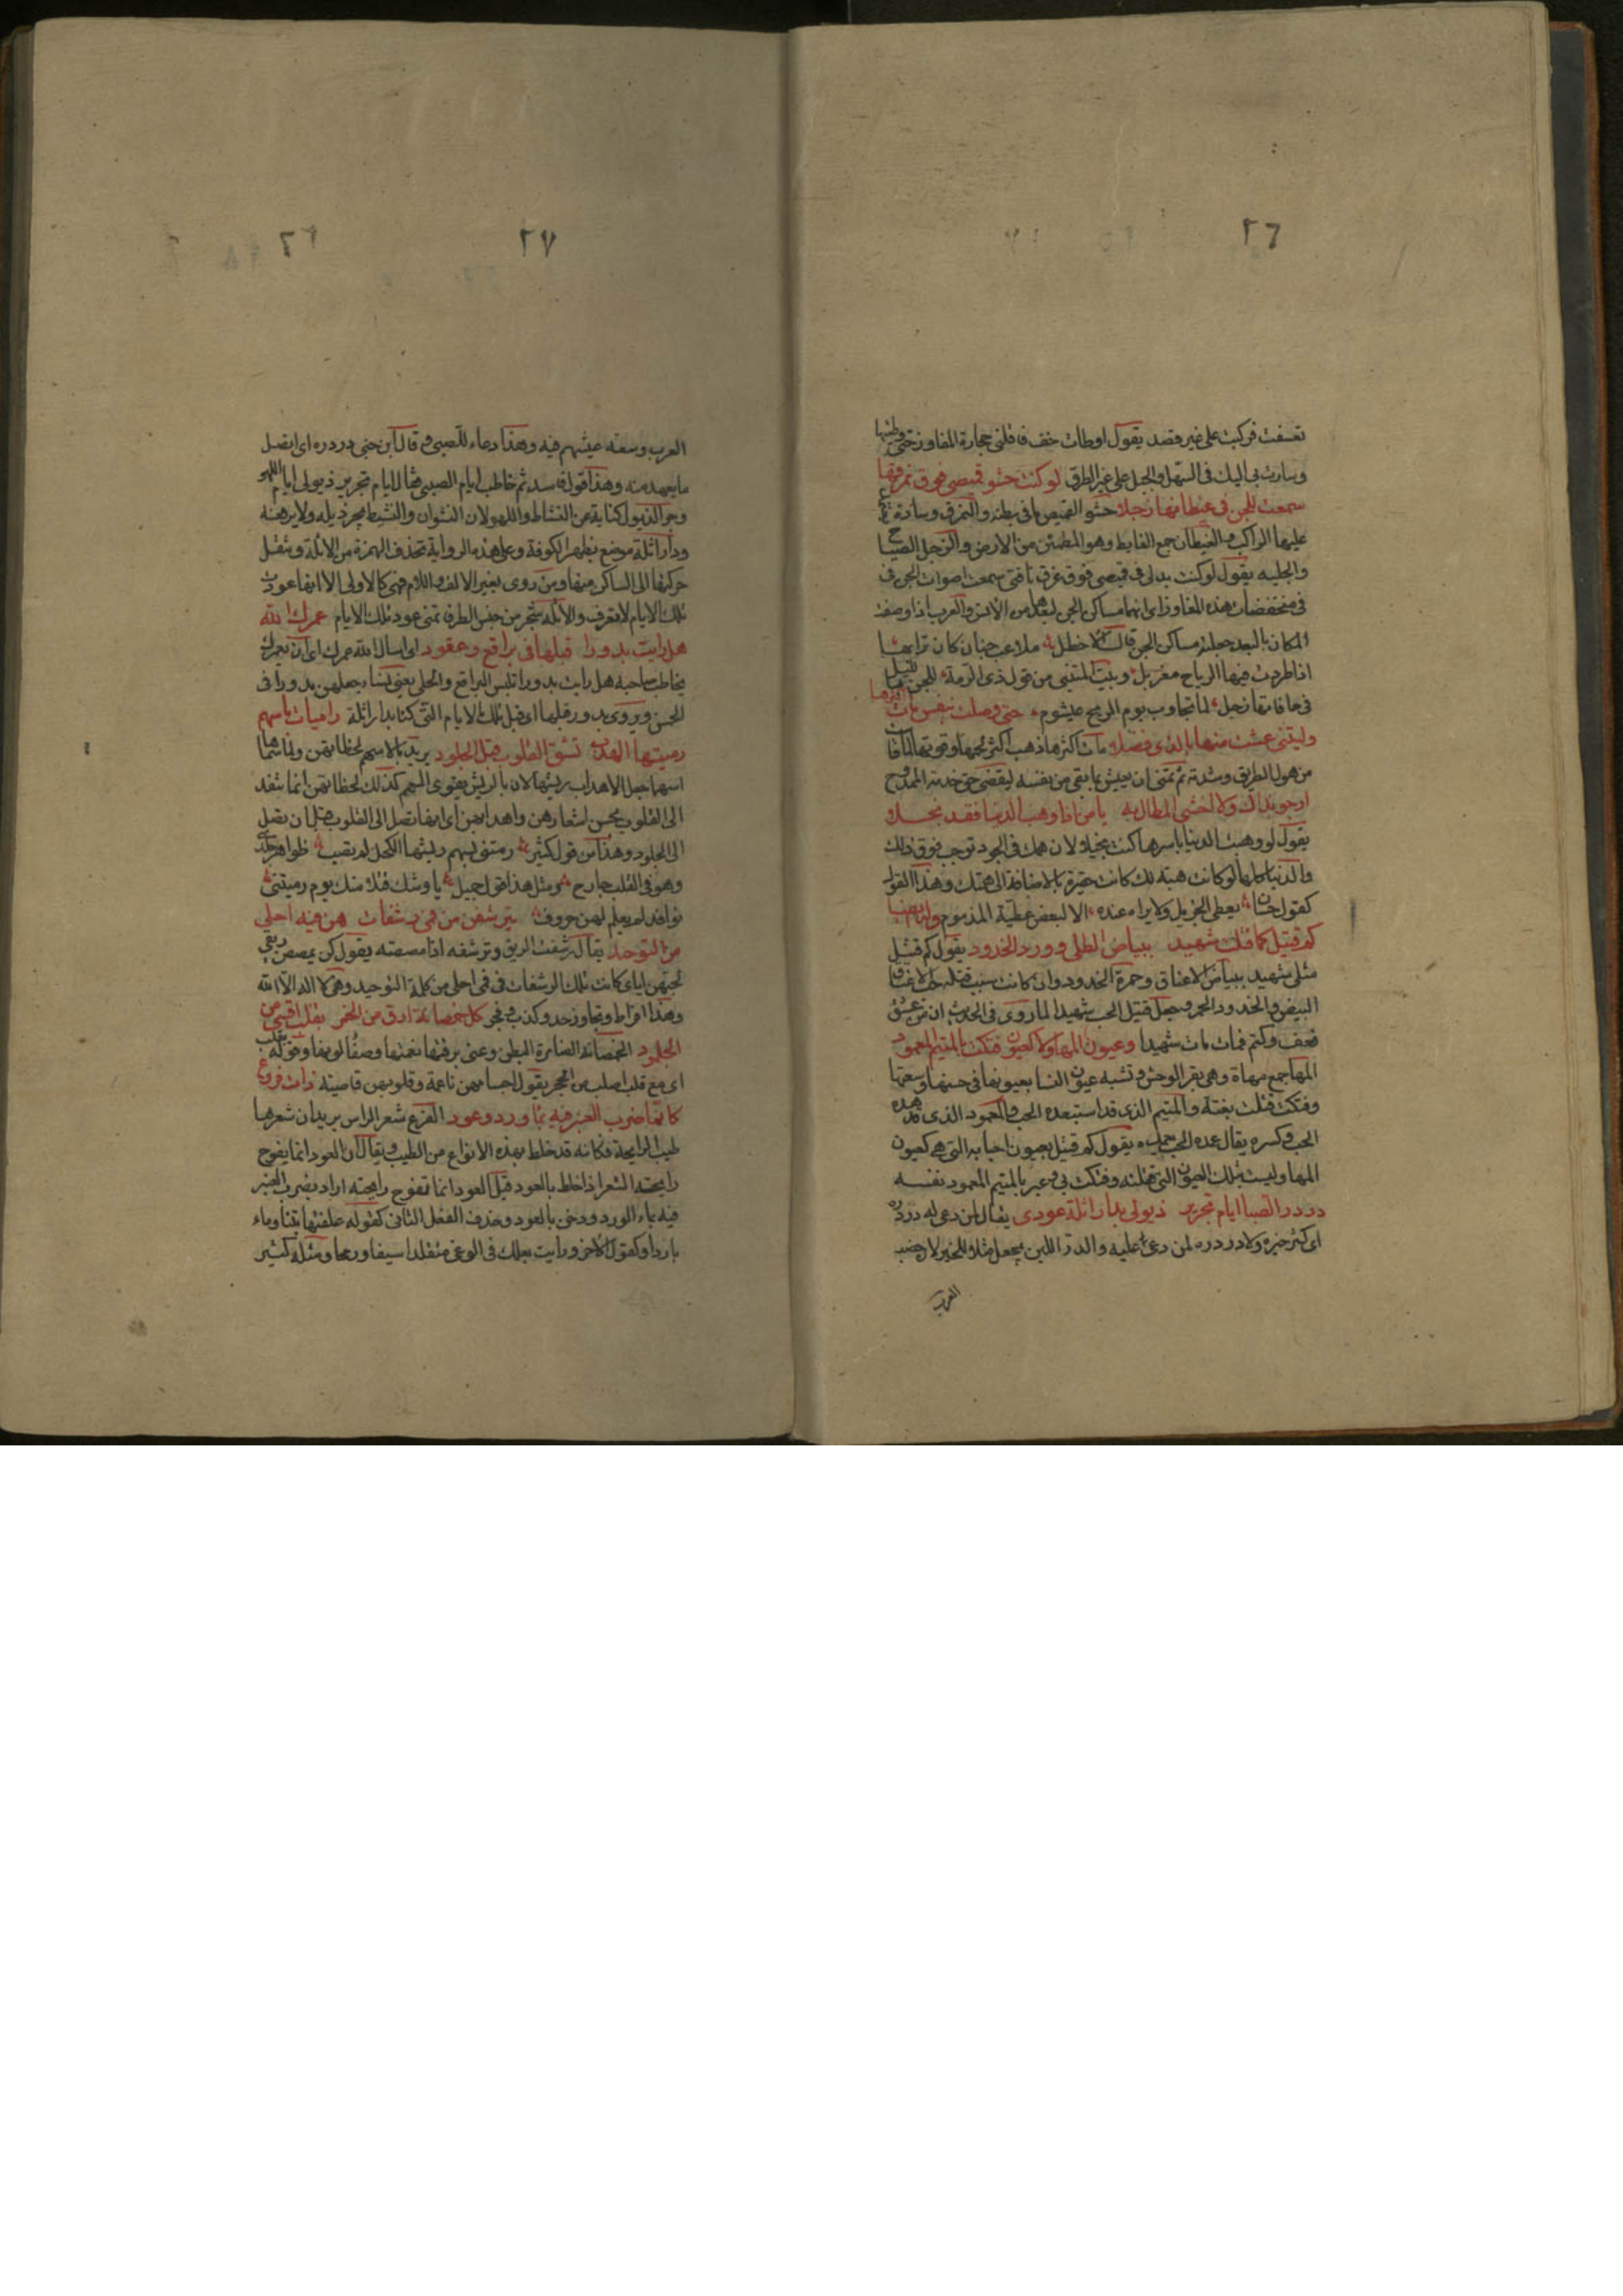 ٢٦
تعسفت فركبت على غير قصد يقول اوطات خف ناقتي حجارة المفاوز حتى وطئتها
وسارت بي اليك في السهل والجبل على غير الطرق لو كنت حشو قميصي فوق نمرقها
سمعت للجن في غيطانها زجلا حشو القميص ما في بطنه والنمرق وسادة
عليها الراكب والغيطان جمع الغايط وهو المطمئن من الارض والزجل الصياح
والجلبه يقول لو كنت بدلي في قميصي فوق نمرق ناقتي سمعت اصوات الجن في
في منخفضات هذه المفاوز اي انها مساكن الجن لبعدها من الانس والعرب اذا وصفت
المكان بالبعد جعلته مساكن الجن قال الاخطل ملاعب جنان كان ترابها
اذا طردت فيها الرياح مغربل وبيت المتنبي من قول ذي الرمة للجن بالليل
في حافاتها زجل كما تجاوب يوم الريح عيشوم حتى وصلت بنفس مات اكثرها
وليتني عشت منها بالذي فضلا مات اكثرها ذهب اكثر لحمها وقوتها لما قاست
من هول الطريق وشدته ثم تمنى ان يعيش بما بقي من نفسه ليقضي حق خدمته الممدوح
ارجو نداك ولا اخشى المطال به يا من اذا وهب الدنيا فقد بخلا
يقول لو وهبت الدنيا باسرها كنت بخيلا لان همك في الجود توجب فوق ذلك
والدنيا كلها لو كانت هبته لك كانت حقيرة بالاضافة الى همتك وهذا القول
كقول حسان يعطي الجزيل ولا يراه عنده الا لبعض عطية المذموم وله ايضا
كم قتيل كما قتلت شهيد ببياض الطلى وورد الخدود يقول كم قتيل
مثلي شهيد ببياض الاعناق وحمرة الخدود وان كانت سبب قتله حب الاعناق
البيض والخدود الحمر وجعل قتيل الحب شهيدا لما روي في الحديث ان من عشق
فعف وكتم فمات مات شهيدا وعيون المها ولا كعيون فتكت بالمتيم المعمود
المها جمع مهاة وهي بقر الوحش وتشبه عيون النسا بعيونها في حسنها وسعتها
وفتكت قتلت بغتة والمتيم الذي قد استبعده الحب والمعمود الذي قد هده
الحب وكسره يقال عمده الحب يعمده يقول كم قتيل بعيون احبابه التي هي كعيون
المها وليست تلك العيون التي قتلته وفتكت بي وعبر بالمتيم المعمود نفسه
در در الصبا ايام تجرير ذيولي بدار اثلة عودي يقال لمن دعي له در دره
اي كثر خيره ولا در دره لمن دعي عليه والدر اللبن يجعل مثلا للخير لان خصب
العرب
٢٧
العرب وسعة عيشهم فيه وهذا دعاء للصبي قال ابن جني در دره اي اتصل
ما يعهد منه وهذا قول فاسد ثم خاطب ايام الصبى فقال ايام تجرير ذيولي ايام اللهو
وجر الذيول كناية عن النشاط واللهو لان النشوان والنشيط يجر ذيله ولا يرفعه
ودار اثلة موضع بظهر الكوفة وعلى هذه الرواية تحذف الهمزة من الاثلة وتنقل
حركتها الى الساكن منها ومن روى بغير الالف واللام فهي كالاولى الا انها عودت
تلك الايام لا تعرف والاثلة شجر من جنس الطرفا تمنى عود تلك الايام عمرك الله
هل رايت بدورا قبلها في براقع وعقود اي اسال الله عمرك اي ان يعمرك
يخاطب صاحبه هل رايت بدورا تلبس البراقع والحلي يعني نساء جعلهن بدورا في
الحسن ويروى بدور قبلها اي قبل تلك الايام التي كنا بدار اثلة راميات باسهم
ريشها الهدب تشق القلوب قبل الجلود يريد بالاسهم لحظاتهن ولما سماها
اسهما جعل الاهداب ريشها لان بالريش يقوى السهم كذلك لحظاتهن انما تنفذ
الى القلوب بحسن اشفارهن واهدابهن اي انها تصل الى القلوب قبل ان تصل
الى الجلود وهذا من قول كثير رمتني بسهم ريشها الكحل لم يصب ظواهر جلدي
وهو في القلب جارح ومثل هذا قول جميل يا وشك فلا منك يوم رميتني
نوافذ لم يعلم لهن حروف يترشفن من فمي رشفات هن فيه احلى
من التوحيد يقال رشفت الريق وترشفه اذا مصصته يقول كن يمصصن ريقي
لحبهن اياي كانت تلك الرشفات في فمي احلى من كلمة التوحيد وهي لا اله الا الله
وهذا افراط وتجاوز حد وكذب وفجر كل خمصانة ارق من الخمر بقلب اقسى من
الجلمود الخمصانة الضامرة البطن وعنى برقتها نعمتها وصفا لونها وقوله بقلب
اي مع قلب اصلب من الحجر يقول اجسامهن ناعمة وقلوبهن قاسيته ذات فرع
كانما ضرب العنبر فيه بماء ورد وعود الفرع شعر الراس يريد ان شعرها
طيب الرايحة فكانه قد خلط بهذه الانواع من الطيب ويقال ان العود انما يفوح
رايحته الشعر اذا خلط بالعود قيل العود انما تفوح رايحته اراد بضرب العنبر
فيه بماء الورد ودخن بالعود وحذف الفعل الثاني كقوله علفتها تبنا وماء
باردا وكقول الاخر ورايت بعلك في الوغى متقلدا سيفا ورمحا ومثله كثير